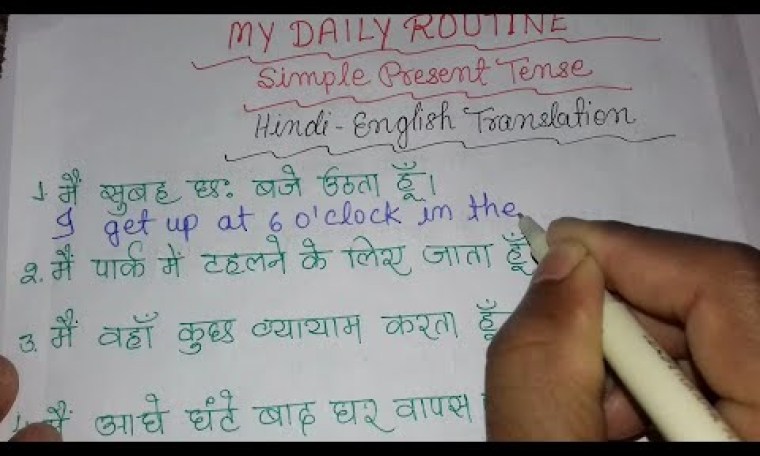 MY DAILY ROUTINE
Simple Present Tense
Hindi - English Translation
1. मैं सुबह छः बजे उठता हूँ।
I get up at 6 o'clock in the
2. मैं पार्क में टहलने के लिए जाता हूँ
3. मैं वहाँ कुछ व्यायाम करता हूँ
मैं आधे घंटे बाद घर वापस